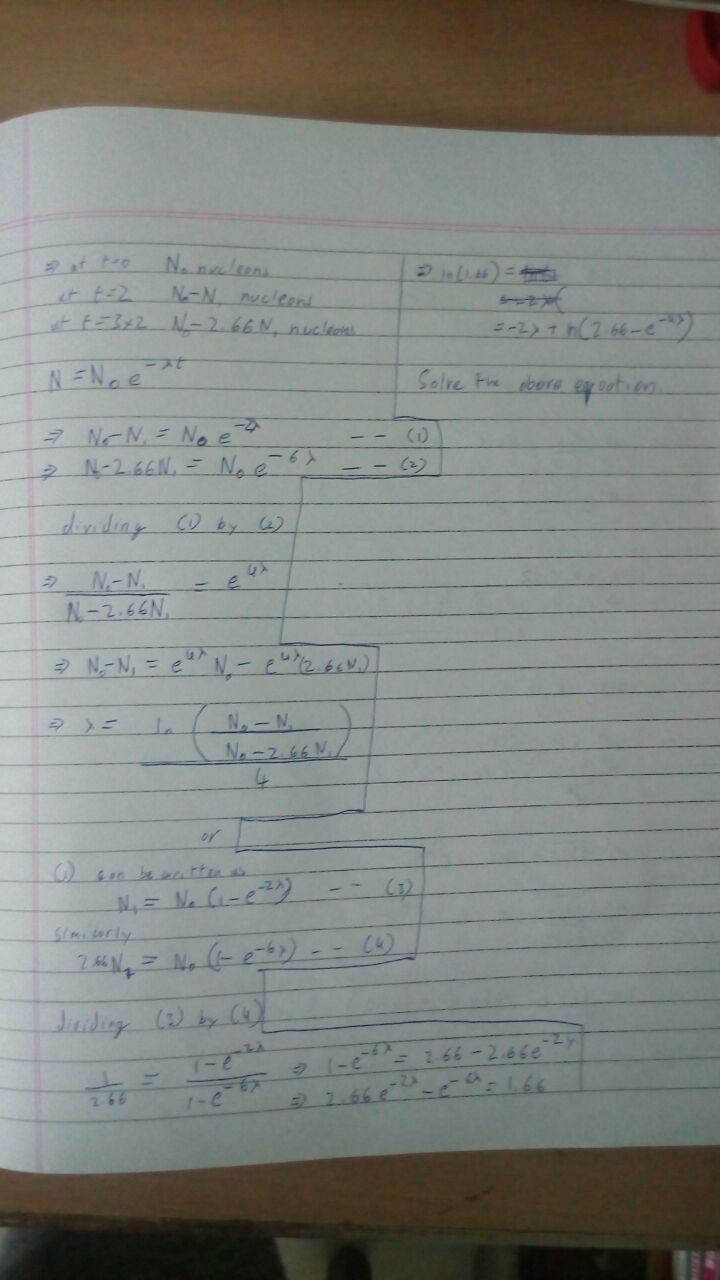 ⇒ at t=0 N₀ nucleons
at t=2 N₀-N₁ nucleons
at t=3×2 N₀-2.66N₁ nucleons
N = N₀ e^{-λt}
⇒ N₀-N₁ = N₀ e^{-2λ} -- (1)
⇒ N₀-2.66N₁ = N₀ e^{-6λ} -- (2)
dividing (1) by (2)
⇒ \frac{N₀-N₁}{N₀-2.66N₁} = e^{4λ}
⇒ N₀-N₁ = e^{4λ} N₀ - e^{4λ}(2.66N₁)
⇒ λ = \frac{ln(\frac{N₀-N₁}{N₀-2.66N₁})}{4}
or
(1) can be written as
N₁ = N₀ (1-e^{-2λ}) -- (3)
similarly
2.66N₁ = N₀ (1-e^{-6λ}) -- (4)
dividing (3) by (4)
\frac{1}{2.66} = \frac{1-e^{-2λ}}{1-e^{-6λ}} ⇒ 1-e^{-6λ} = 2.66-2.66e^{-2λ}
⇒ 2.66e^{-2λ}-e^{-6λ} = 1.66
⇒ ln(1.66) =
= -2λ + ln(2.66-e^{-4λ})
Solve the above equation.